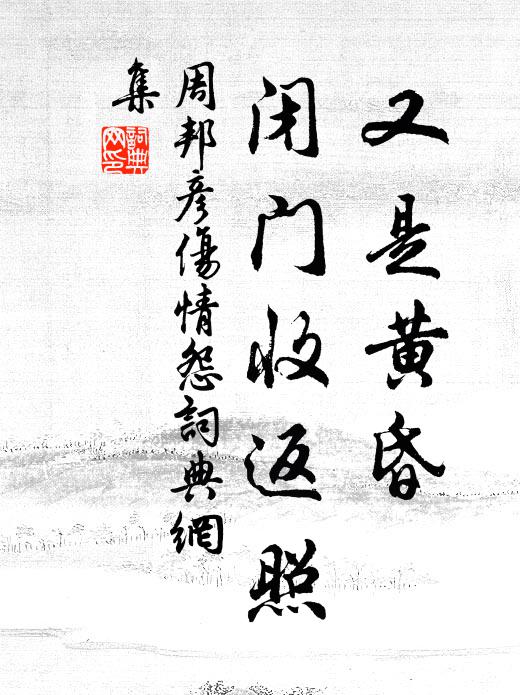 又是黄昏
闭门收返照
周邦彦傷情怨詞典網
集
詞典
网印